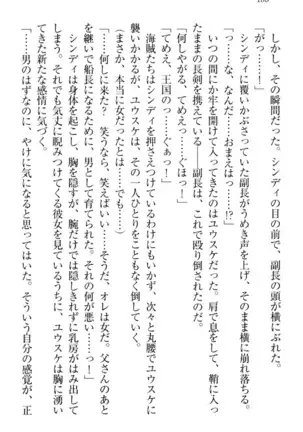 しかし、その瞬間だった。シンディの目の前で、副長の頭が横にぶれた。
「がっ……！」
シンディに覆いかぶさっていた副長がうめき声を上げ、そのまま横に崩れ落ちる。
「っ……な、なんだ……おまえは……っ!?」
いつの間にか牢を開けて入ってきたのはユウスケだった。肩で息をして、鞘に入ったままの長剣を携えている……副長は、これで殴り倒されたのだ。
「何しやがる、てめえっ……ぐほっ！」
「てめえ、王国の……っ……ぐぁっ！」
海賊たちはシンディを押さえつけているわけにもいかず、次々と丸腰でユウスケに襲いかかるが、ユウスケは、その一人ひとりをことごとく倒していく。
（まさか、本当に女だったとは……でも……）
「……何しに来た、笑うなら、笑えばいい……っ。そうだ、オレは女だ。父さんのあとを継いで船長になるために、男として育てられた。それの何が悪い……っ！」
シンディは身体を起こし、胸を隠すが、腕だけでは隠しきれずに乳房がはみ出してしまう。それでも気丈に睨みつけてくる彼女を見ているうちに、ユウスケは胸に湧いてきた新たな感情に気づく。
「……男のはずなのに、やけに気になると思ってはいた。そういう自分の感覚が、正